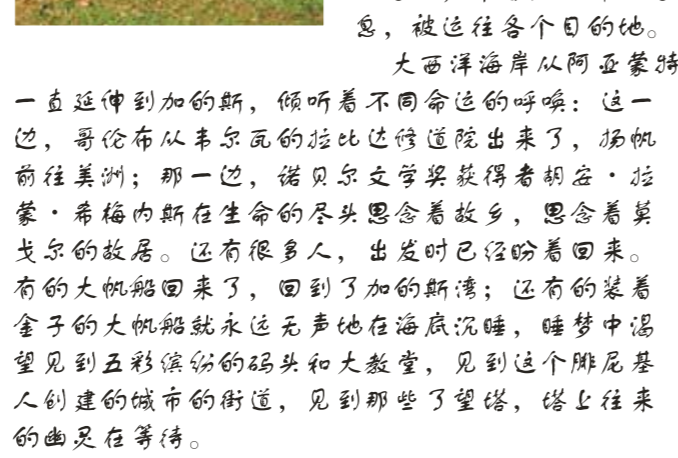 息，被运往各个目的地。
大西洋海岸从阿亚蒙特
一直延伸到加的斯，倾听着不同命运的呼唤：这一
边，哥伦布从韦尔瓦的拉比达修道院出来了，扬帆
前往美洲；那一边，诺贝尔文学奖获得者胡安·拉
蒙·希梅内斯在生命的尽头思念着故乡，思念着莫
戈尔的故居。还有很多人，出发时已经盼着回来。
有的大帆船回来了，回到了加的斯湾；还有的装着
金子的大帆船就永远无声地在海底沉睡，睡梦中渴
望见到五彩缤纷的码头和大教堂，见到这个腓尼基
人创建的城市的街道，见到那些了望塔，塔上往来
的幽灵在等待。